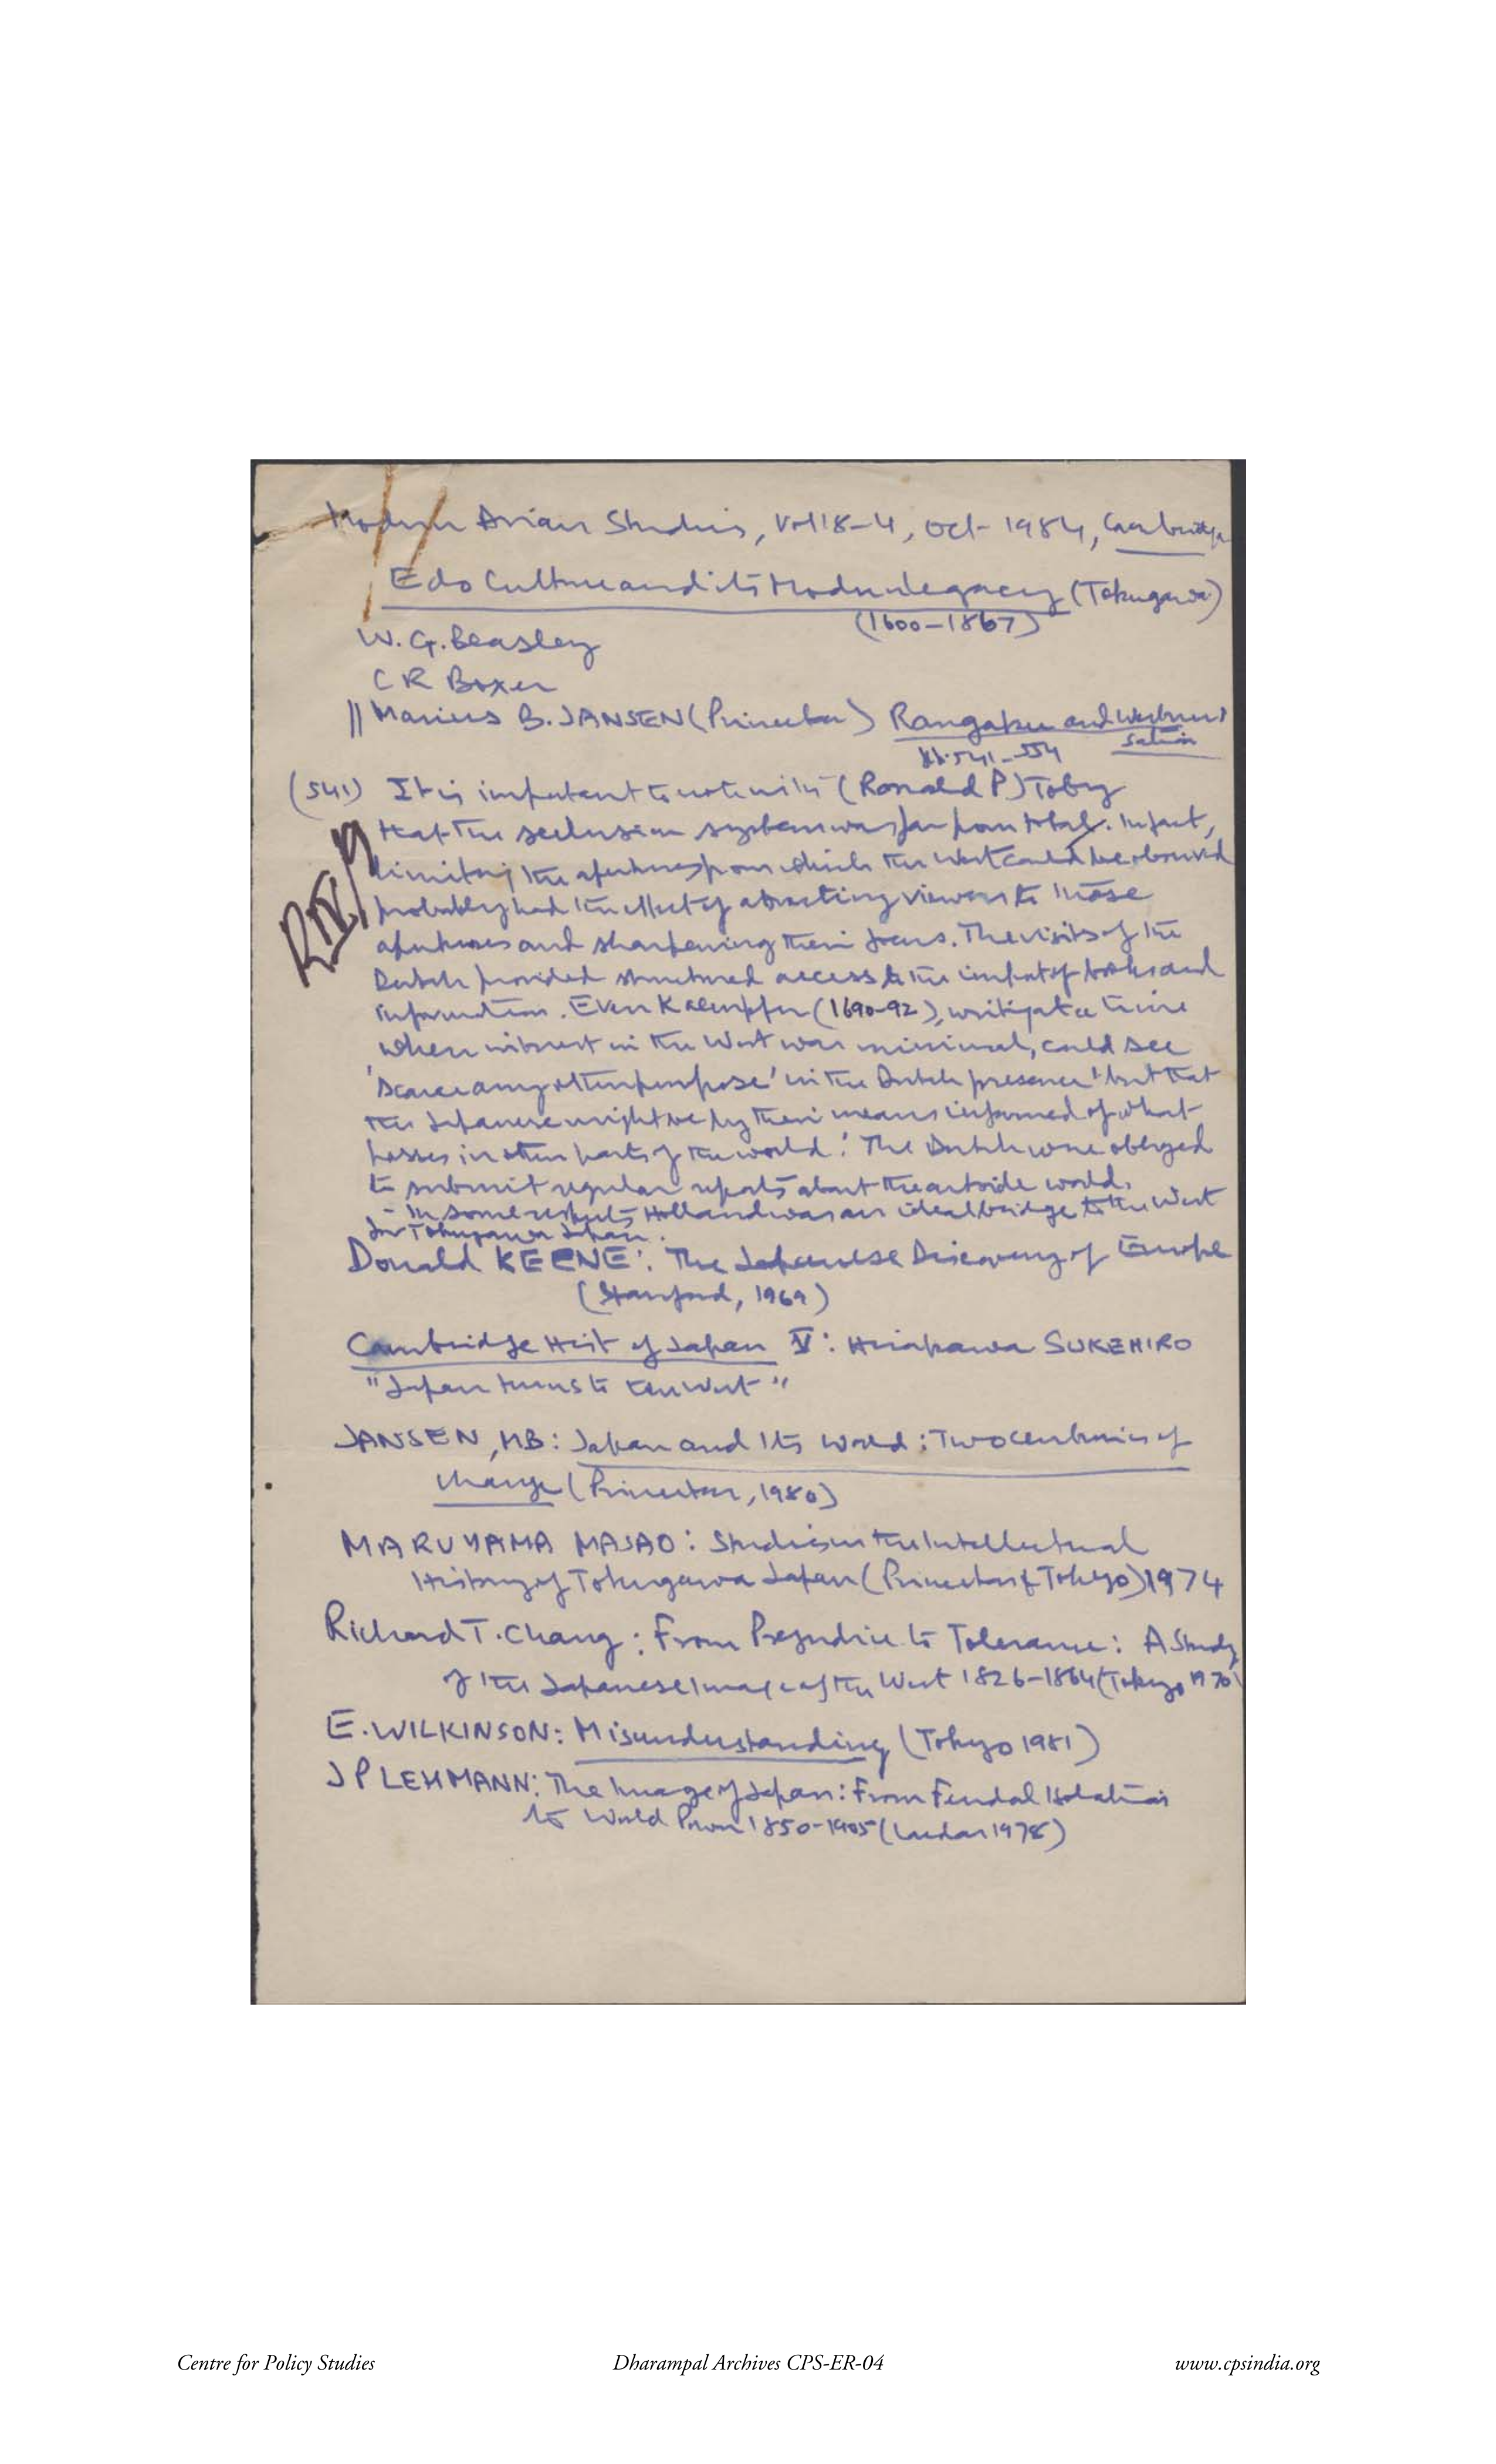 Modern Asian Studies, Vol 18-4, Oct- 1984, Cambridge
Edo Culture and its Modern legacy (Tokugawa)
(1600-1867)
W. G. Beasley
C R Boxer
|| Marius B. JANSEN (Princeton) Rangaku and Westerni
sation
pp. 541-554
(541) It is important to note with (Ronald P) Toby
that the seclusion system was far from total. In fact,
limiting the apertures from which the West could be observed
probably had the effect of attracting viewers to those
apertures and sharpening their focus. The visits of the
Dutch provided structured access to the import of books and
information. Even Kaempfer (1690-92), writing at a time
when interest in the West was minimal, could see
'scarce any other purpose' in the Dutch presence 'but that
the Japanese might be by their means informed of what
passes in other parts of the world.' The Dutch were obliged
to submit regular reports about the outside world.
- In some respects Holland was an ideal bridge to the West
for Tokugawa Japan.
Donald KEENE: The Japanese Discovery of Europe
(Stanford, 1969)
Cambridge Hist of Japan V: Hirakawa SUKEHIRO
"Japan turns to the West"
JANSEN, MB: Japan and Its World: Two centuries of
change (Princeton, 1980)
MARUYAMA MASAO: Studies in the Intellectual
History of Tokugawa Japan (Princeton & Tokyo) 1974
Richard T. Chang: From Prejudice to Tolerance: A Study
of the Japanese Image of the West 1826-1864 (Tokyo 1970)
E. WILKINSON: Misunderstanding (Tokyo 1981)
J P LEHMANN: The Image of Japan: From Feudal Isolation
to World Power 1850-1905 (London 1978)
Centre for Policy Studies Dharampal Archives CPS-ER-04 www.cpsindia.org